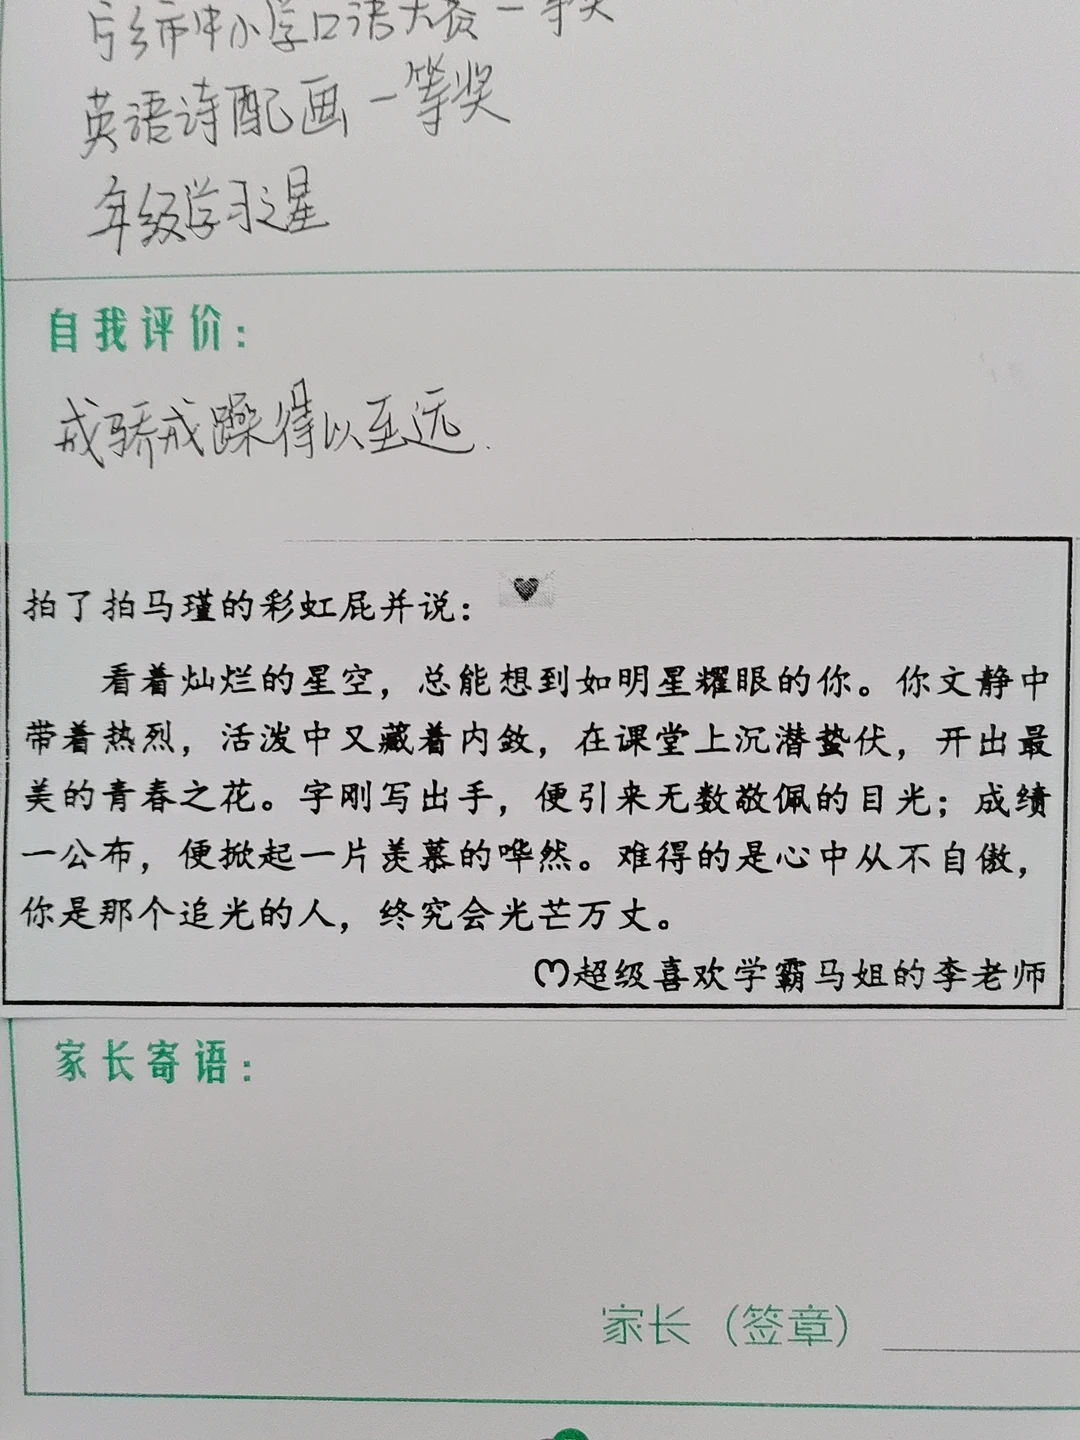 市中小学口语大赛一等奖
英语诗配画一等奖
年级学习之星
自我评价：
戒骄戒躁得以至远.
拍了拍马瑾的彩虹屁并说：
看着灿烂的星空，总能想到如明星耀眼的你。你文静中
带着热烈，活泼中又藏着内敛，在课堂上沉潜蛰伏，开出最
美的青春之花。字刚写出手，便引来无数敬佩的目光；成绩
一公布，便掀起一片羡慕的哗然。难得的是心中从不自傲，
你是那个追光的人，终究会光芒万丈。
超级喜欢学霸马姐的李老师
家长寄语：
家长（签章）